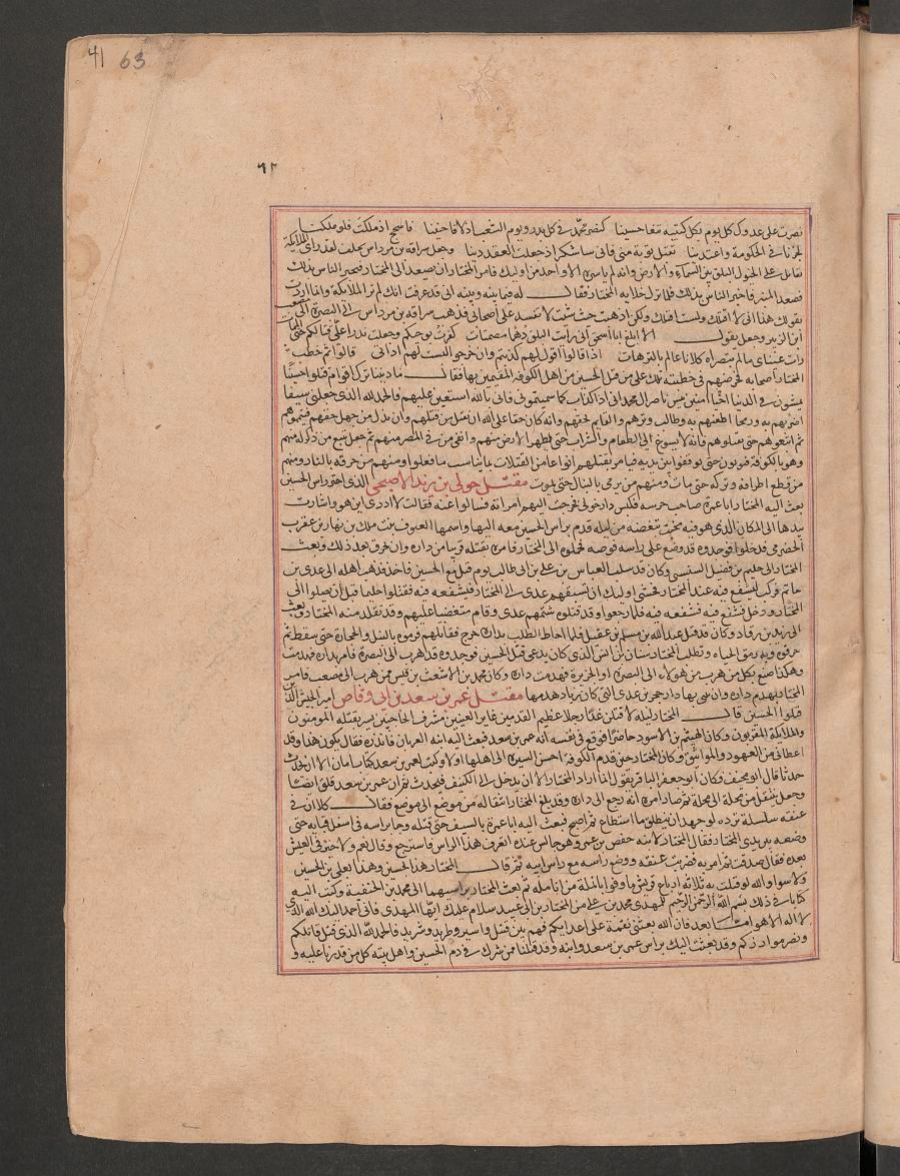 41 63
٦٢
نصرت على عدوك كل يوم بكل كتيبه تنعا حسينا كنصر محمد في كل بدر ويوم الشعب اذ لاقا حنينا فاسجح اذ ملكت فلو ملكنا
لجرنا في الحكومة واعتدينا تقبل توبة منى فانى ساشكر اذ جعلت العفو دينا وجعل سراقة بن مرداس يحلف لقد راى الملايكة
تقاتل على الخيول البلق بين السماء والارض وانه لم ياسره الا واحد من اوليك فامر المختار ان يصعد الى المنبر فيخبر الناس بذلك
فصعد المنبر فاخبر الناس بذلك فلما نزل خلا به المختار فقال له فيما بينه وبينه انى قد عرفت انك لم تر الملايكة وانما اردت
بقولك هذا انى لا اقتلك ولست اقتلك ولكن اذهب حيث شئت لا تفسد على اصحابى فذهب سراقة بن مرداس الى البصرة الى مصعب
ابن الزبير وجعل يقول الا ابلغ ابا اسحق انى رايت البلق دهما مصمتات كفرت بوحيكم وجعلت نذرا على قتالكم حتى الممات
رات عيناى ما لم تبصراه كلانا عالم بالترهات اذا قالوا اقول لهم كذبتم وان خرجوا لبست لهم اداتى قالوا ثم خطب
المختار اصحابه فحرضهم في خطبته تلك على من قتل الحسين من اهل الكوفة المقيمين بها فقال ما ديننا ترك اقوام قتلوا حسينا
يمشون في الدنيا احياء امنين بيس ناصر ال محمد انى اذا الكذاب كما سميتمونى فانى بالله استعين عليهم فالحمد لله الذى جعلنى سيفا
اضربهم به ورمحا اطعنهم به وطالب وترهم والقايم بحقهم وانه كان حقا على الله ان يقتل من قتلهم وان يذل من جهل حقهم فسموهم
ثم اتبعوهم حتى تقتلوهم فانه لا يسوغ الى الطعام والشراب حتى اطهر الارض منهم وانفى من في المصر منهم ثم جعل يتبع من
وهو بالكوفة فيوتون حتى يوقفوا بين يديه فيامر بقتلهم انواعا من القتلات بما يناسب ما فعلوا ومنهم من حرقه بالنار ومنهم
من قطع اطرافه وتركه حتى مات ومنهم من يرمى بالنبال حتى يموت مقتل خولى بن يزيد الاصبحى الذى احتز راس الحسين
بعث اليه المختار ابا عمرة صاحب حرسه فكبس داره خرجت اليهم امراته فسالوها عنه فقالت لا ادرى اين هو واشارت
بيدها الى المكان الذى هو فيه مختف تبغضه من ليلة قدم براس الحسين معه اليها واسمها العيوف بنت ملك بن نهار بن عقرب
الحضرمى فدخلوا فوجدوه قد وضع على راسه قوصرة فحملوه الى المختار فامر بقتله قريبا من داره وان يحرق بعد ذلك وبعث
المختار الى حكيم بن فضيل السنبسى وكان قد سلب العباس بن على بن ابى طالب يوم قتل مع الحسين فاخذ فذهب اهله الى عدى بن
حاتم فركب ليشفع فيه عند المختار فخشى اوليك ان يسبقهم عدى الى المختار فيشفعه فيه فقتلوا حكيما قبل ان يصلوا الى
المختار ودخل فشفع فيه فشفعه فيه فلما رجعوا وقد قتلوه شتمهم عدى وقام متغضبا عليهم وقد تقلد منه المختار وبعث
الى زيد بن رقاد وكان قد قتل عبد الله بن مسلم بن عقيل فلما احاط الطلب بداره خرج فقاتلهم فرموه بالنبل والحجارة حتى سقط ثم
حرقوه وبه رمق الحياه وتطلب المختار سنان بن انس الذى كان يدعى قتل الحسين فوجدوه قد هرب الى البصرة فامر بداره فهدمت
وهكذا صنع بكل من هرب من هولاء الى البصرة او الجزيرة فهدمت داره وكان محمد بن الاشعث بن قيس ممن هرب الى مصعب فامر
المختار بهدم داره وان يبنى بها دار حجر بن عدى التى كان زياد هدمها مقتل عمر بن سعد بن ابى وقاص امير الجيش الذى
قتلوا الحسين قال المختار ليلة لاقتلن غدا رجلا عظيم القدمين غاير العينين مشرف الحاجبين يسر بقتله المومنون
والملايكة المقربون وكان الهيثم بن الاسود حاضرا فوقع في نفسه انه عمر بن سعد فبعث اليه ابنه العريان فانذره فقال يكون هذا وقد
اعطانى من العهود والمواثيق وكان المختار حين قدم الكوفة احسن السيرة الى اهلها اولا وكتب لعمر بن سعد كتاب امان الا ان يحدث
حدثا قال ابو مخنف فكان ابو جعفر الباقر يقول انما اراد المختار الا ان يدخل الى الكنيف فيحدث ثم ان عمر بن سعد قلق ايضا
وجعل يتنقل من محلة الى محلة ثم صار امره انه رجع الى داره وقد بلغ المختار انتقاله من موضع الى موضع فقال كلا ان في
عنقه سلسلة ترده لو جهد ان ينطلق ما استطاع ثم اصبح فبعث اليه ابا عمرة بالسيف حتى قتله وجا براسه في اسفل قبايه حتى
وضعه بين يدى المختار فقال المختار لابنه حفص بن عمر وهو جالس عنده اتعرف هذا الراس فاسترجع وقال نعم ولا خير في العيش
بعده فقال صدقت ثم امر به فضربت عنقه ووضع راسه مع راس ابيه ثم قال المختار هذا بالحسين وهذا بعلى بن الحسين
ولا سوا والله لو قتلت به ثلاثة ارباع قريش ما وفوا بانملة من انامله ثم بعث المختار براسيهما الى محمد بن الحنفية وكتب اليه
كتابا في ذلك بسم الله الرحمن الرحيم للمهدى محمد بن على من المختار بن ابى عبيد سلام عليك ايها المهدى فانى احمد اليك الله الذى
لا اله الا هو اما بعد فان الله بعثنى نقمة على اعدايكم فهم بين قتيل واسير وطريد وشريد فالحمد لله الذى قتل قاتلكم
ونصر موازركم وقد بعثت اليك براس عمر بن سعد وابنه وقد قتلنا ممن شرك في دم الحسين واهل بيته كل من قدرنا عليه و